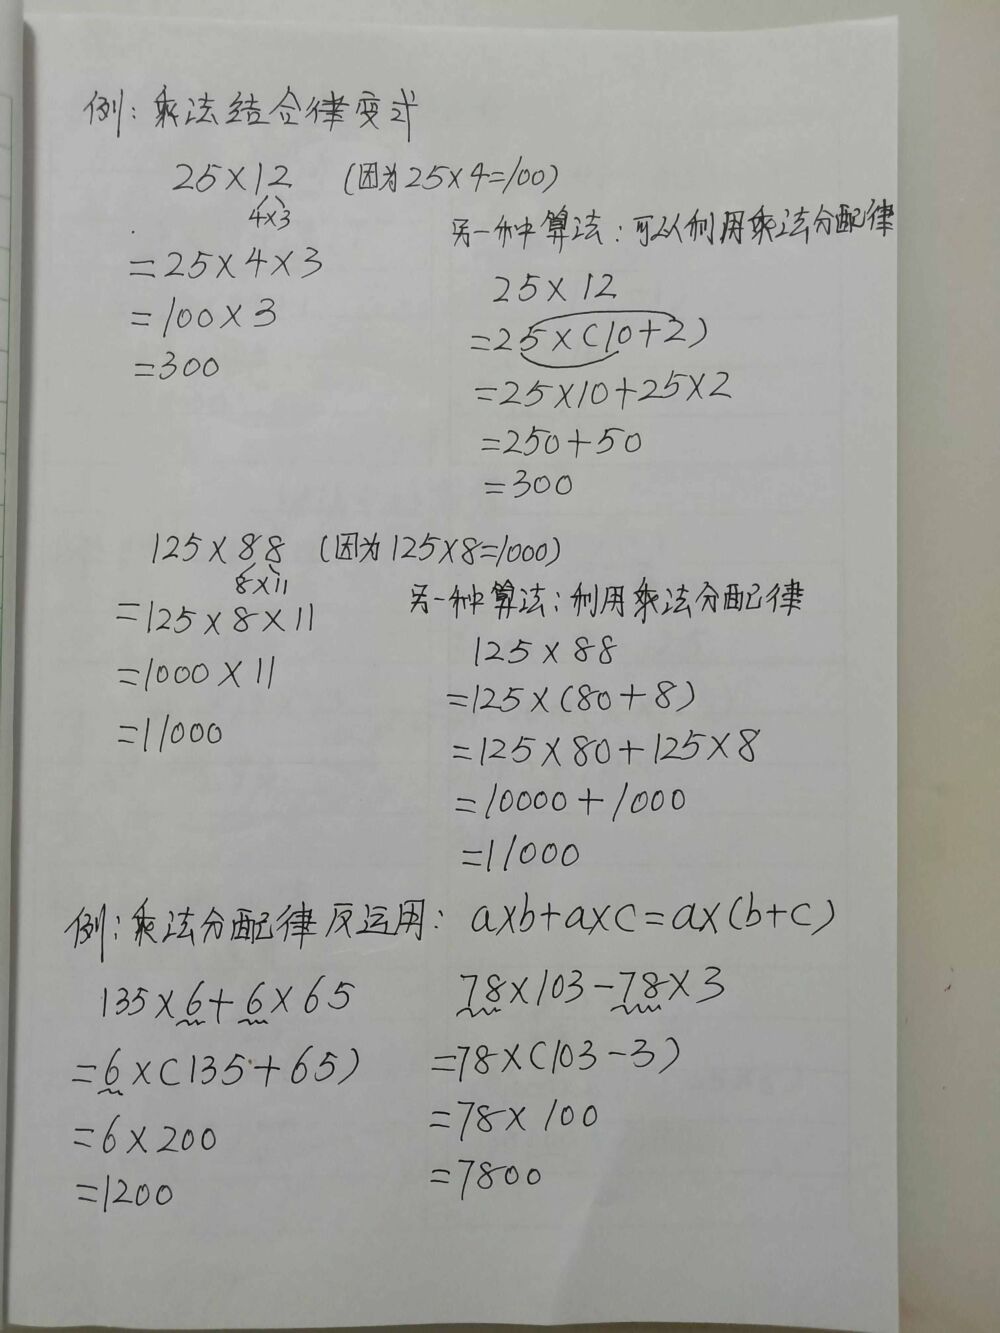 例：乘法结合律变式
25×12 (因为25×4=100)
4×3
=25×4×3
=100×3
=300
另一种算法：可以利用乘法分配律
25×12
=25×(10+2)
=25×10+25×2
=250+50
=300
125×88 (因为125×8=1000)
8×11
=125×8×11
=1000×11
=11000
另一种算法：利用乘法分配律
125×88
=125×(80+8)
=125×80+125×8
=10000+1000
=11000
例：乘法分配律反运用：a×b+a×c=a×(b+c)
135×6+6×65
=6×(135+65)
=6×200
=1200
78×103-78×3
=78×(103-3)
=78×100
=7800